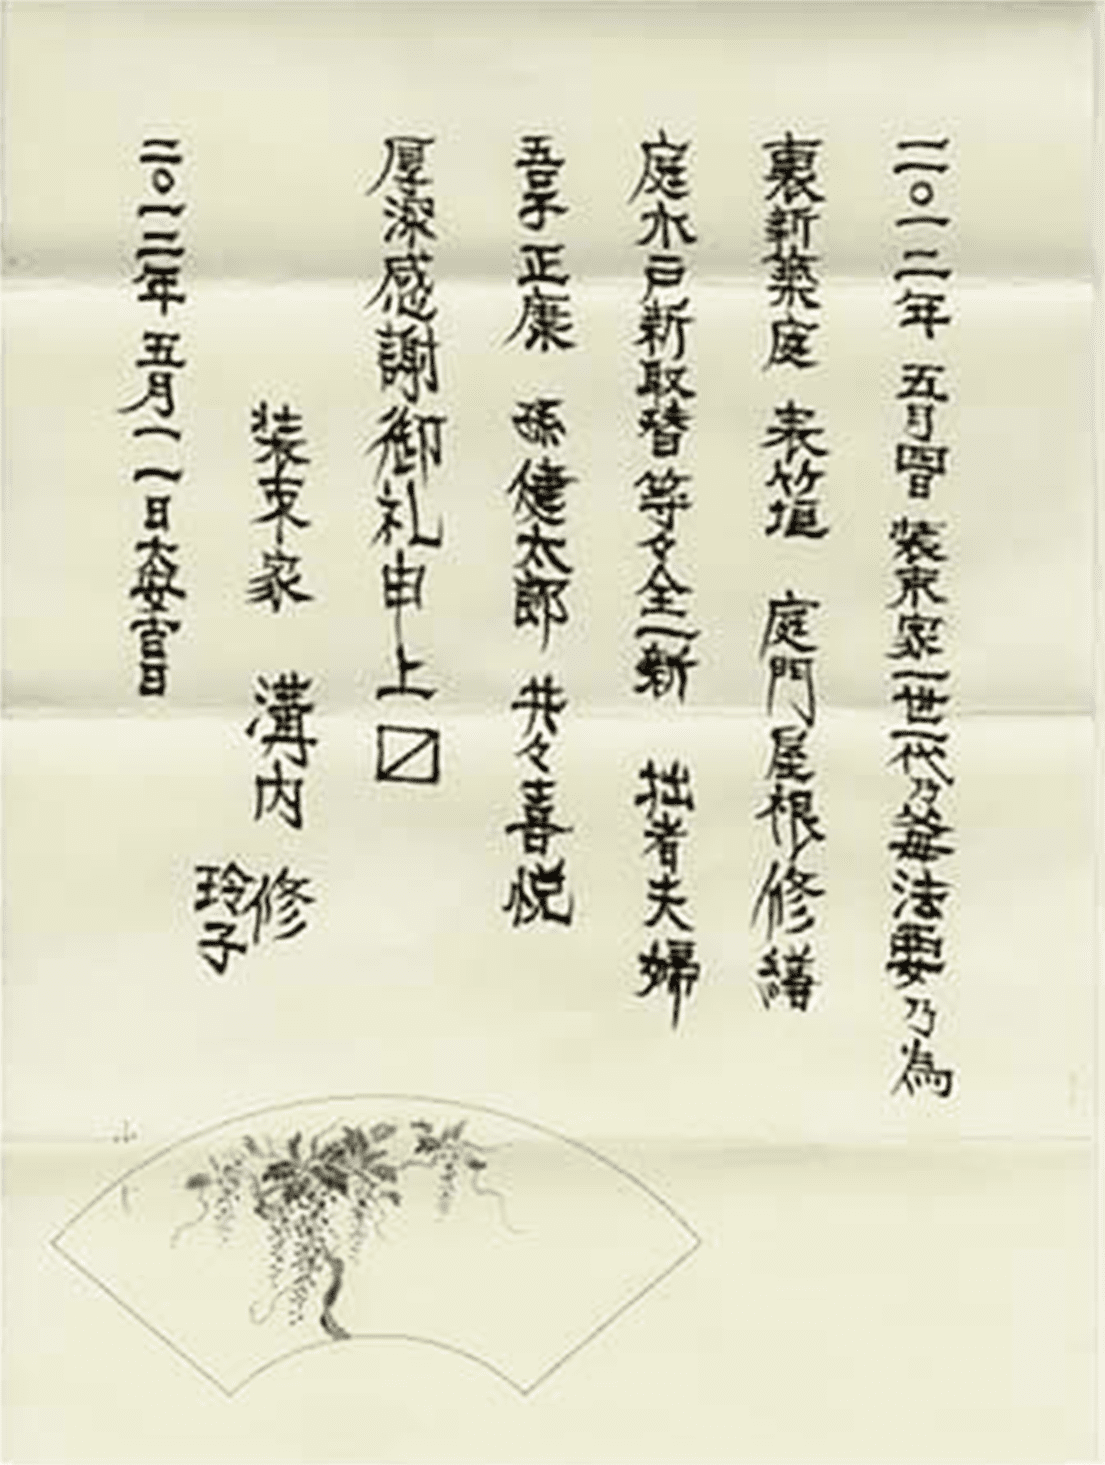 二〇一二年 五月四日 装束家一世一代乃毎法要乃為
裏新築庭 表竹垣 庭門屋根修繕
庭木戸新取替等々全一新 拙者夫婦
吾子正廉 孫健太郎 共々喜悦
厚深感謝御礼申上〼
装束家 溝内 修
玲子
二〇一二年 五月一一日大安吉日